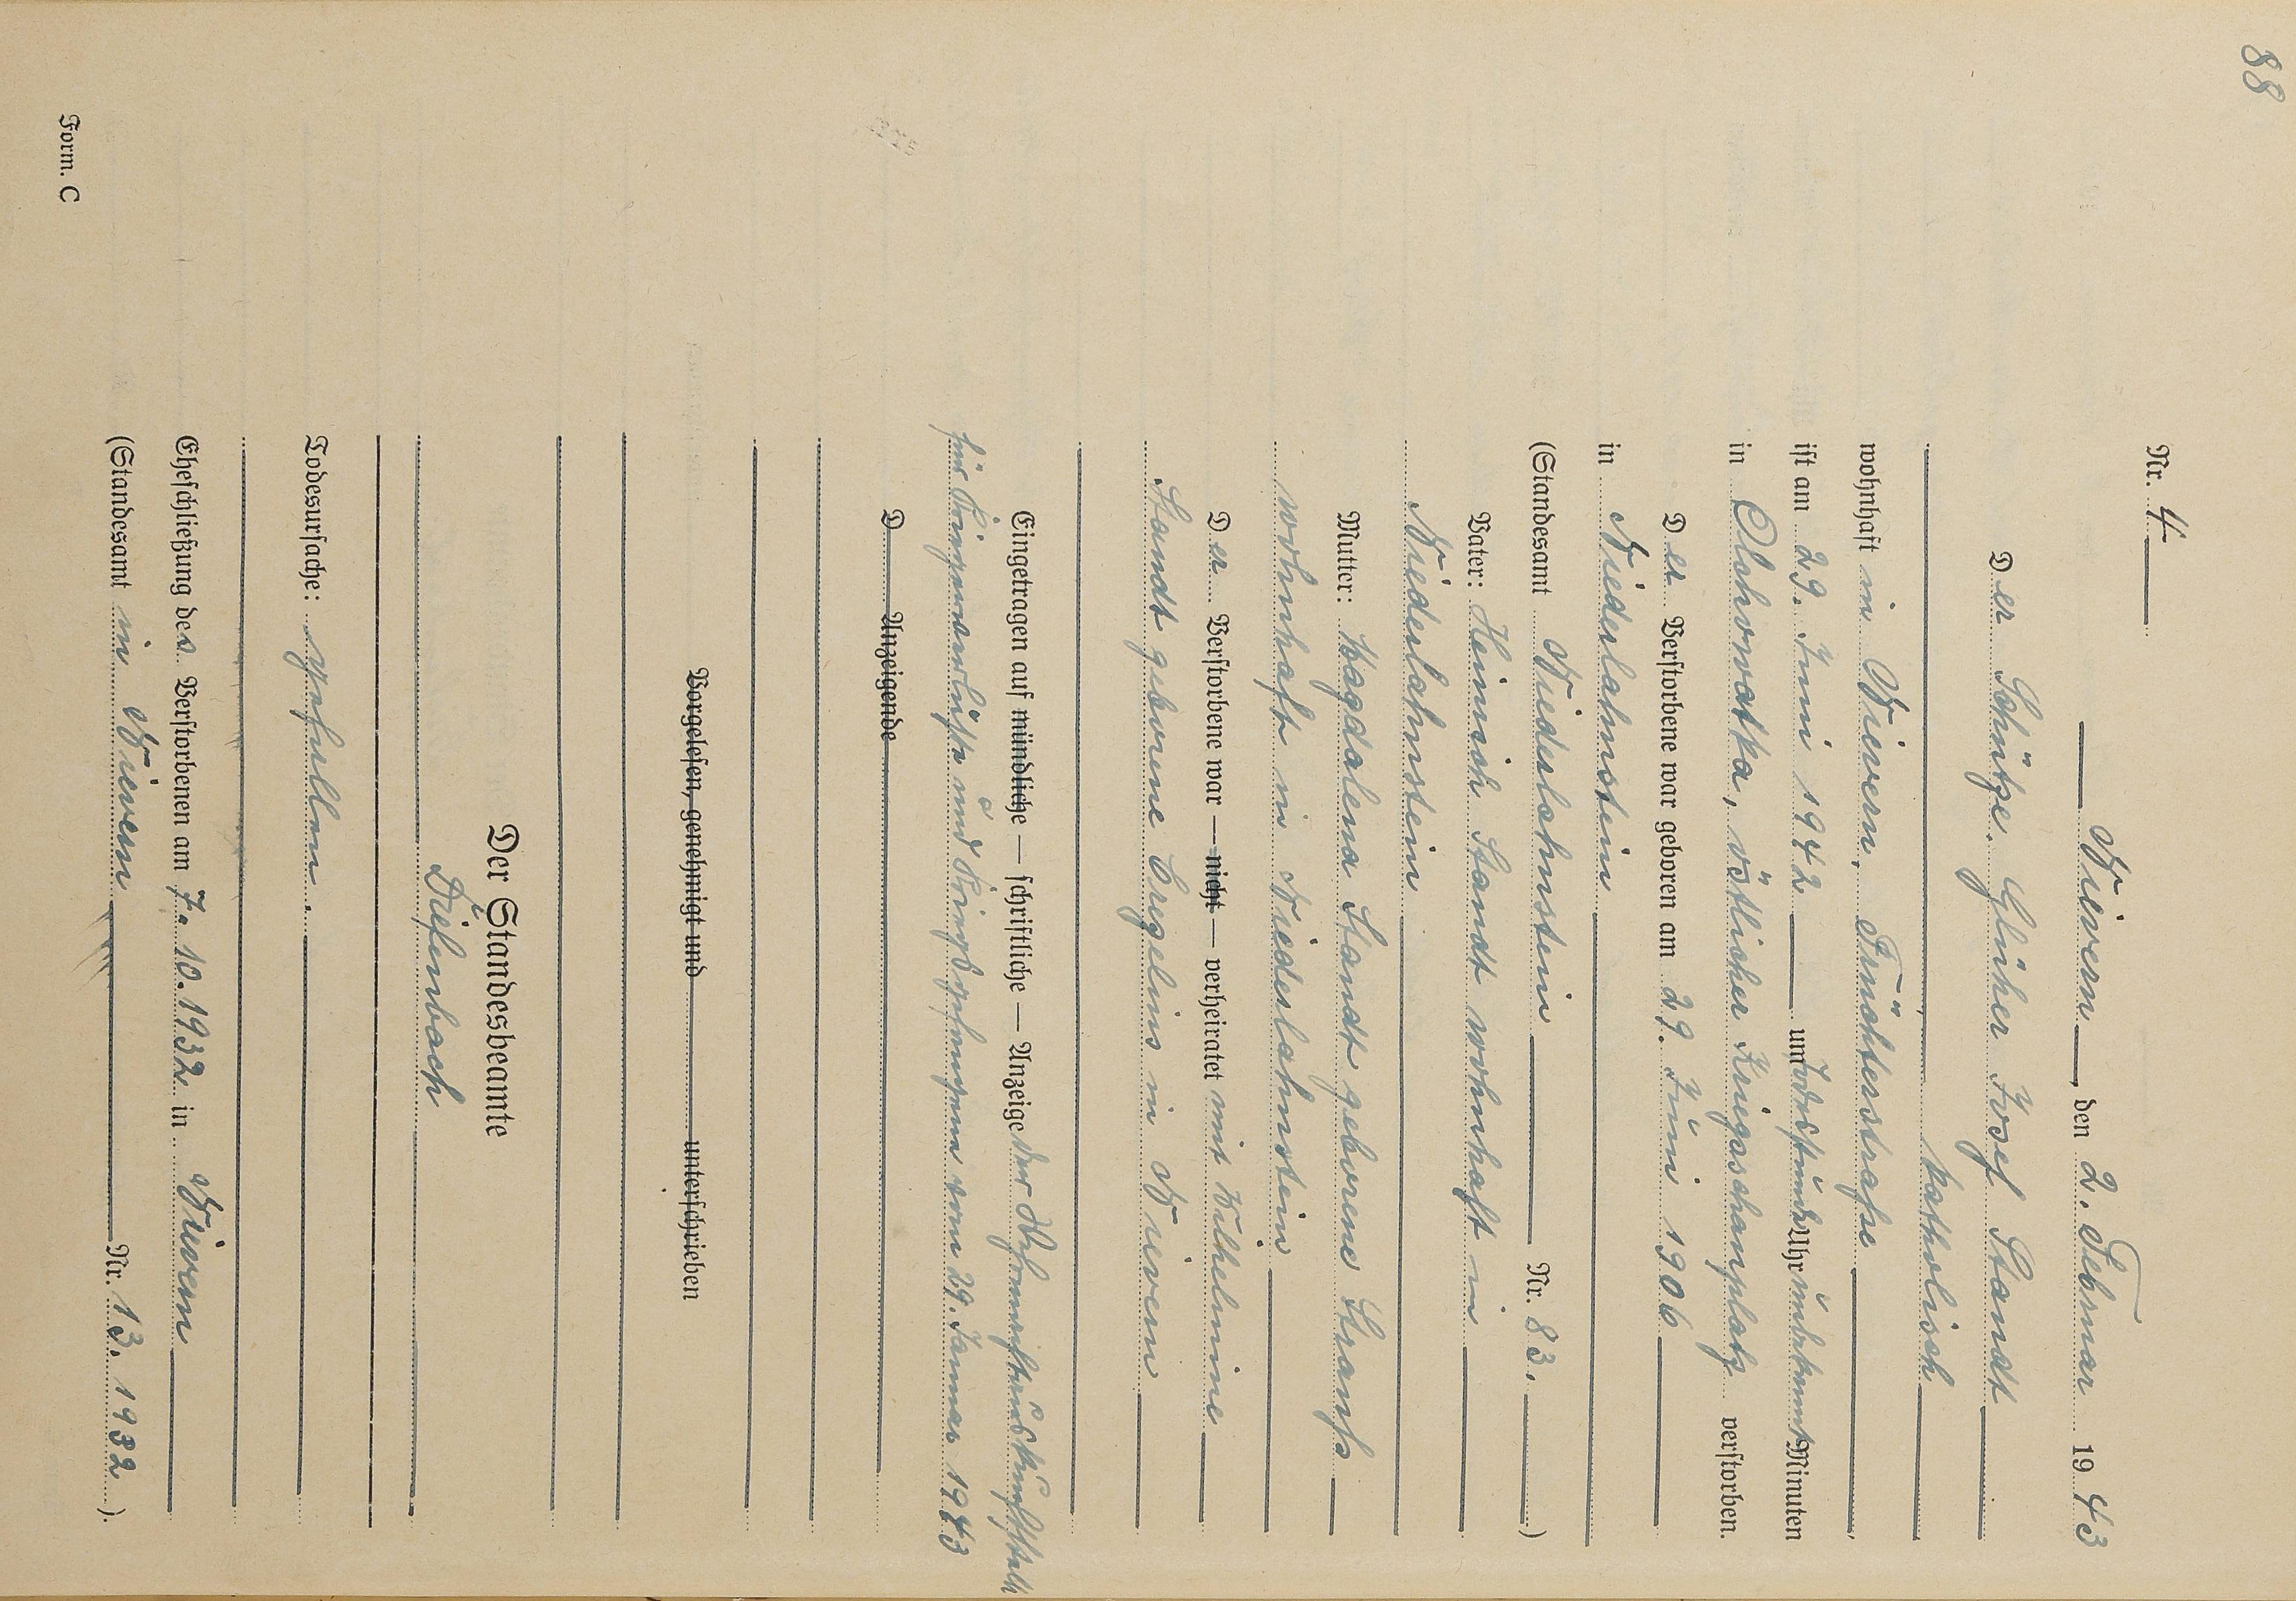 88
Nr. 4
Nievern, den 2. Februar 1943
Der Schütze Glüher Josef Standt
katholisch
wohnhaft in Nievern, Früchterstraße
ist am 29. Juni 1942 um Todesstunde Uhr unbekannt Minuten
in Olchowatka, östlicher Kriegsschauplatz verstorben.
Der Verstorbene war geboren am 29. Juni 1906
in Niederlahnstein
(Standesamt Niederlahnstein Nr. 83.)
Vater: Heinrich Standt wohnhaft in
Niederlahnstein
Mutter: Magdalena Standt geborene Strauß
wohnhaft in Niederlahnstein
Der Verstorbene war — nicht — verheiratet mit Wilhelmine
Standt geborene Eregelius in Nievern
Eingetragen auf mündliche — schriftliche — Anzeige der Wehrmachtauskunftstelle
für Kriegerverluste und Kriegsgefangene vom 29. Januar 1943
D Anzeigende
Vorgelesen, genehmigt und unterschrieben
Der Standesbeamte
Diefenbach
Todesursache: gefallen.
Eheschließung des Verstorbenen am 7. 10. 1932 in Nievern
(Standesamt in Nievern Nr. 13. 1932).
Form. C